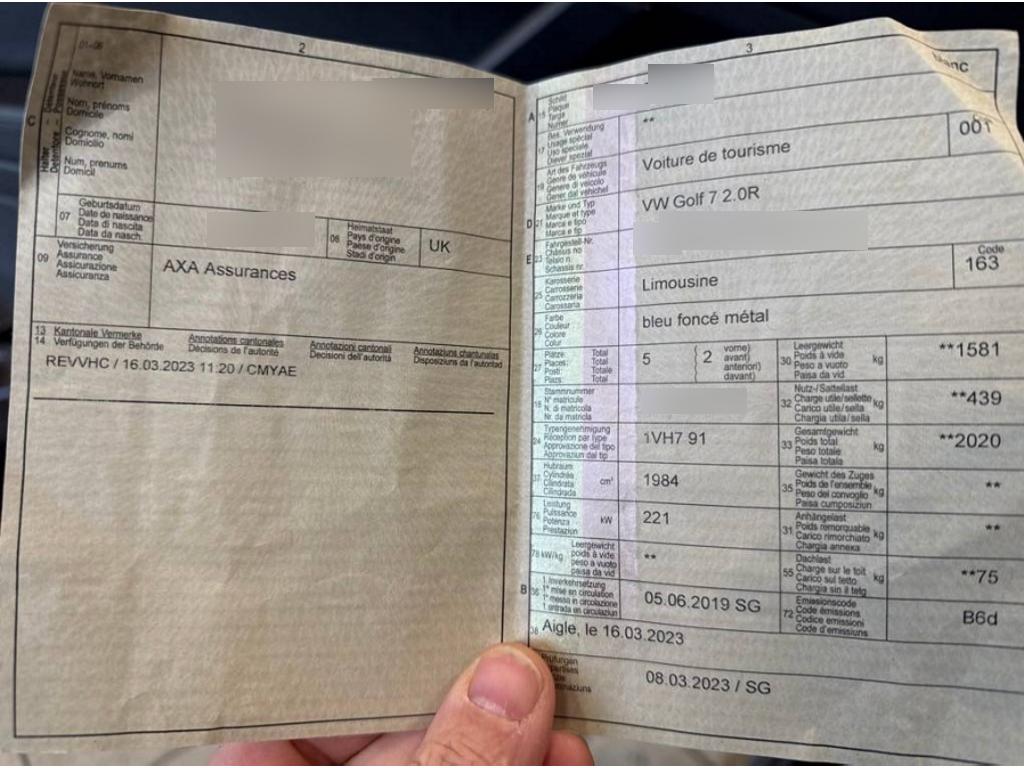 2
01-06
C
Halter
Name, Vornamen
Wohnort
Nom, prénoms
Domicile
Cognome, nomi
Domicilio
Num, prenums
Domicil
07
Geburtsdatum
Date de naissance
Data di nascita
Data da nasch.
08
Heimatstaat
Pays d'origine
Paese d'origine
Stadi d'origin
UK
09
Versicherung
Assurance
Assicurazione
Assicuranza
AXA Assurances
13 Kantonale Vermerke
14 Verfügungen der Behörde
Annotations cantonales
Décisions de l'autorité
Annotazioni cantonali
Decisioni dell'autorità
Annotaziuns chantunalas
Disposiziuns da l'autoritad
REVVHC / 16.03.2023 11.20 / CMYAE
3
blanc
A 15
Schild
Plaque
Targa
Numer
17
Bes. Verwendung
Usage spécial
Uso speciale
Diever spezial
**
19
Art des Fahrzeugs
Genre de véhicule
Genere di veicolo
Gener dal vehichel
Voiture de tourisme
001
D 21
Marke und Typ
Marque et type
Marca e tipo
Marca e tip
VW Golf 7 2.0R
E 23
Fahrgestell-Nr.
Châssis no
Telaio n.
Schassis nr.
25
Karosserie
Carrosserie
Carrozzeria
Carossaria
Limousine
Code
163
26
Farbe
Couleur
Colore
Colur
bleu foncé métal
27
Plätze: Total
Places: Total
Posti: Totale
Plazs: Total
5
2
vorne)
avant)
anteriori)
davant)
30
Leergewicht
Poids à vide
Peso a vuoto
Paisa da vid
kg
**1581
18
Stammnummer
N° matricule
N. di matricola
Nr. da matricla
32
Nutz-/Sattellast
Charge utile/sellette
Carico utile/sella
Chargia utila/sella
kg
**439
24
Typengenehmigung
Réception par type
Approvazione del tipo
Approvaziun dal tip
1VH7 91
33
Gesamtgewicht
Poids total
Peso totale
Paisa totala
kg
**2020
37
Hubraum
Cylindrée
Cilindrata
Cilindrada
cm³
1984
35
Gewicht des Zuges
Poids de l'ensemble
Peso del convoglio
Paisa cumposiziun
kg
**
76
Leistung
Puissance
Potenza
Prestaziun
kW
221
31
Anhängelast
Poids remorquable
Carico rimorchiato
Chargia annexa
kg
**
78 kW/kg
Leergewicht
poids à vide
peso a vuoto
paisa da vid
**
55
Dachlast
Charge sur le toit
Carico sul tetto
Chargia sin il tetg
kg
**75
B 36
1. Inverkehrsetzung
1re mise en circulation
1a messa in circolazione
1. entrada en circulaziun
05.06.2019 SG
72
Emissionscode
Code émissions
Codice emissioni
Code d'emissiuns
B6d
38
Aigle, le 16.03.2023
Prüfungen
08.03.2023 / SG